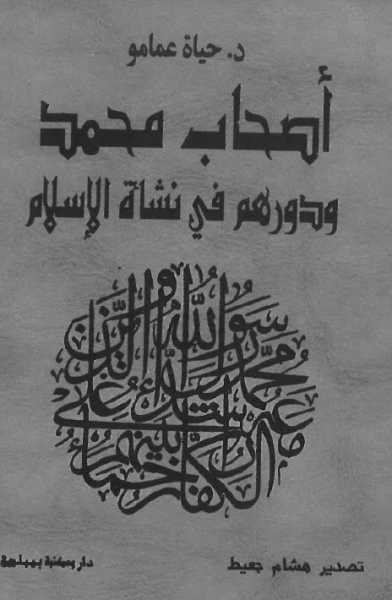 د. حياة عمامو
أصحاب محمد
ودورهم في نشأة الإسلام
محمد رسول الله والذين معه أشداء على الكفار رحماء بينهم
تصدير هشام جعيط
دار ومكتبة بيبليون